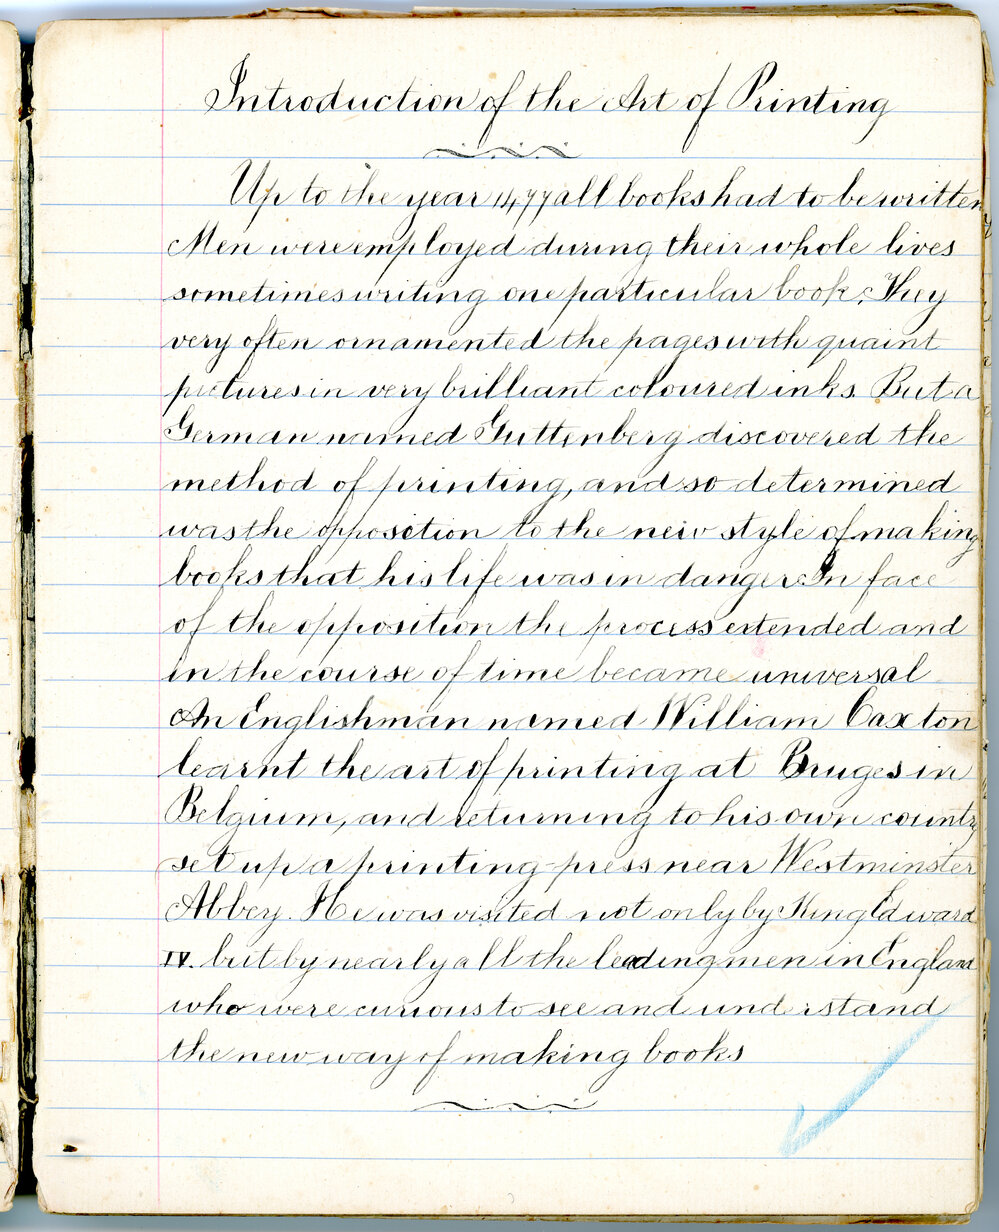 Introduction of the Art of Printing
Up to the year 1477 all books had to be written
Men were employed during their whole lives
sometimes writing one particular book. They
very often ornamented the pages with quaint
pictures in very brilliant coloured inks. But a
German named Guttenberg discovered the
method of printing, and so determined
was the opposition to the new style of making
books that his life was in danger. In face
of the opposition the process extended and
in the course of time became universal
An Englishman named William Caxton
learnt the art of printing at Bruges in
Belgium, and returning to his own country
set up a printing-press near Westminster
Abbey. He was visited not only by King Edward
IV. but by nearly all the leading men in England
who were curious to see and understand
the new way of making books